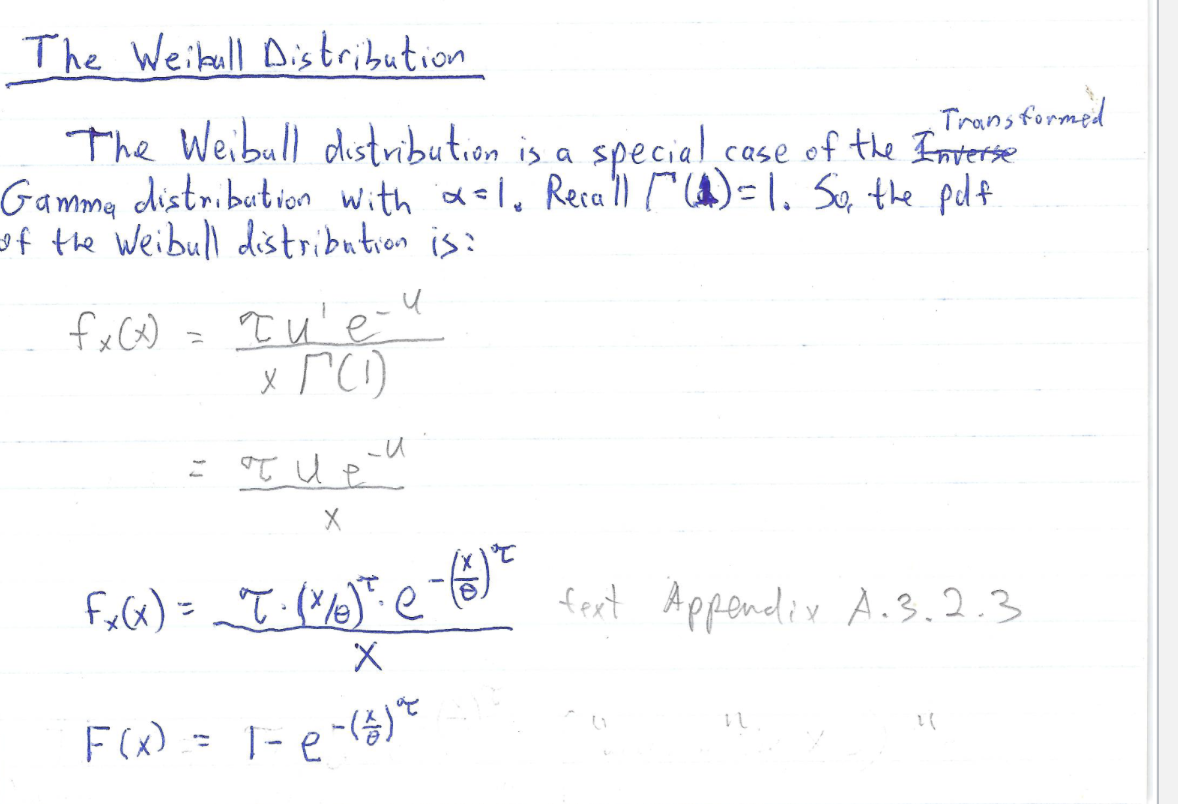 The Weibull Distribution
Transformed
The Weibull distribution is a special case of the Inverse
Gamma distribution with α=1. Recall Γ(1)=1. So, the pdf
of the Weibull distribution is:
fₓ(x) = τu¹e^-u / xΓ(1)
= τue^-u / x
fₓ(x) = τ·(x/θ)^τ·e^-(x/θ)^τ / x text Appendix A.3.2.3
F(x) = 1-e^-(x/θ)^τ " " "